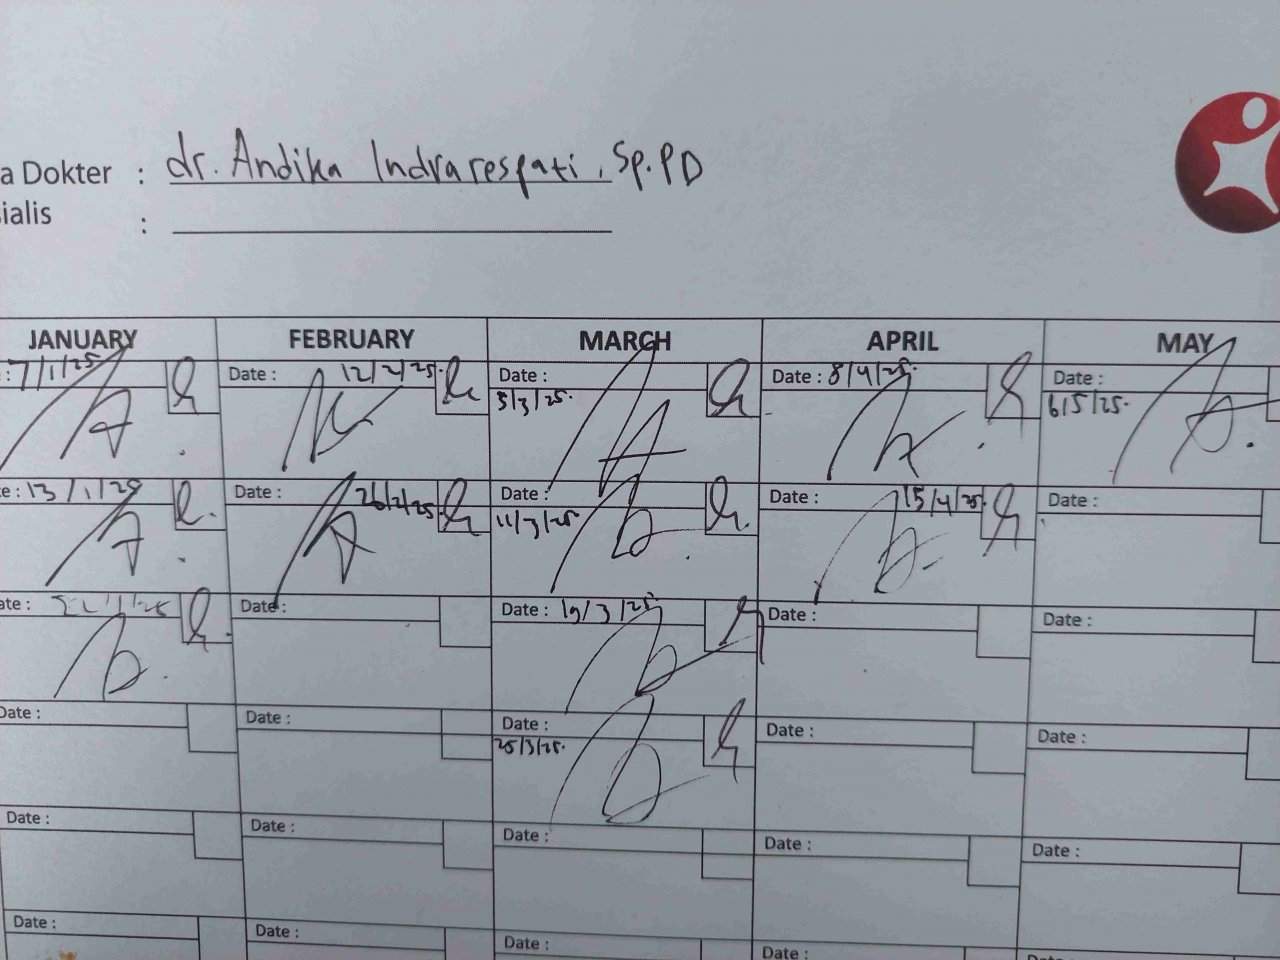 a Dokter : dr. Andika Indrarespati, Sp.PD
ialis :
JANUARY FEBRUARY MARCH APRIL MAY
: 7/1/25 Date : 12/2/25. Date : Date : 8/4/25. Date :
5/3/25. 6/5/25.
e : 13/1/25 Date : 26/2/25. Date : Date : 15/4/25. Date :
11/3/25.
ate : Date : Date : 19/3/25. Date : Date :
Date : Date : Date : Date : Date :
25/3/25.
Date : Date : Date : Date : Date :
Date : Date : Date : Date : Date :